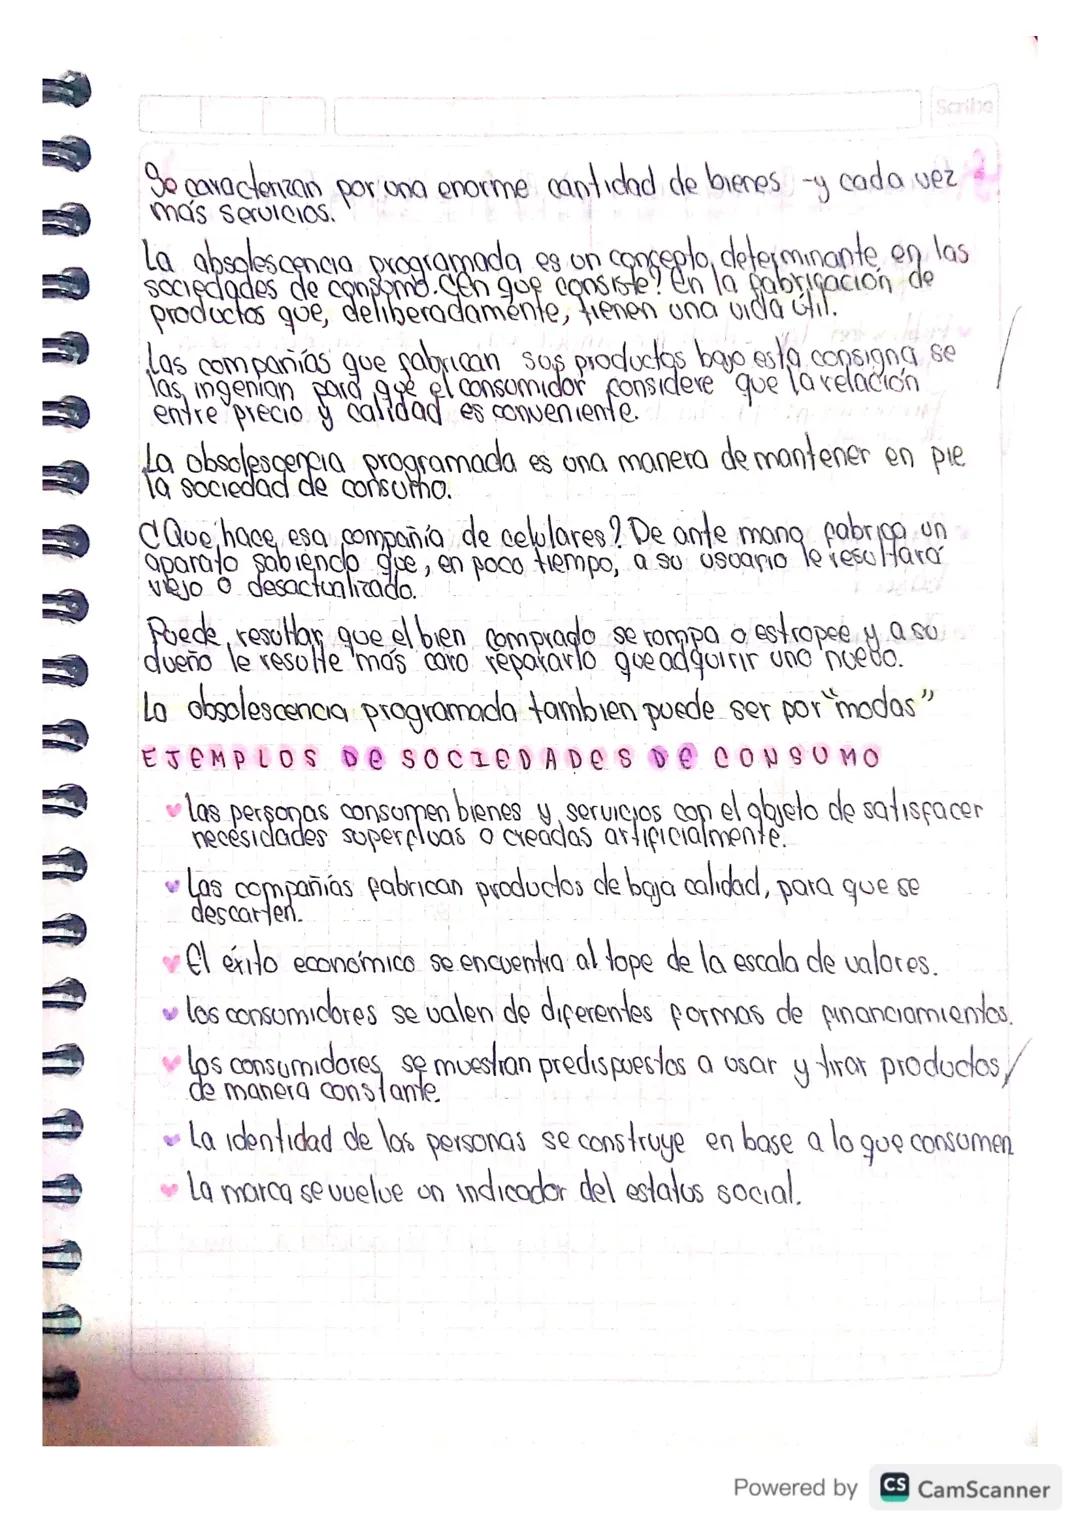 Scribe
Se caracterizan por una enorme cantidad de bienes -y cada vez
más servicios.
La absolescencia programada es un concepto determinante en las
sociedades de consumo. ¿En que consiste? En la fabricación de
productos que, deliberadamente, tienen una vida útil.
Las compañías que fabrican sus productos bajo esta consigna se
las ingenian para que el consumidor considere que la relación
entre precio y calidad es conveniente.
La obsolescencia programada es una manera de mantener en pie
la sociedad de consumo.
¿Que hace esa compañía de celulares? De ante mano fabrica un
aparato sabiendo que, en poco tiempo, a su usuario le resultará
viejo o desactualizado.
Puede resultar que el bien comprado se rompa o estropee y a su
dueño le resulte más caro repararlo que adquirir uno nuevo.
La obsolescencia programada tambien puede ser por "modas"
EJEMPLOS DE SOCIEDADES DE CONSUMO
las personas consumen bienes y servicios con el objeto de satisfacer
necesidades superfluas o creadas artificialmente.
Las compañías fabrican productos de baja calidad, para que se
descarten.
El éxito económico se encuentra al tope de la escala de valores.
los consumidores se valen de diferentes formas de financiamientos.
Los consumidores se muestran predispuestos a usar y tirar productos
de manera constante.
La identidad de las personas se construye en base a lo que consumen
La marca se vuelve un indicador del estatus social.
Powered by CS CamScanner